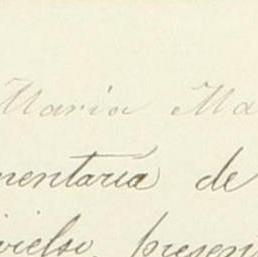 Maria Ma
mentaria de
vielso, presen